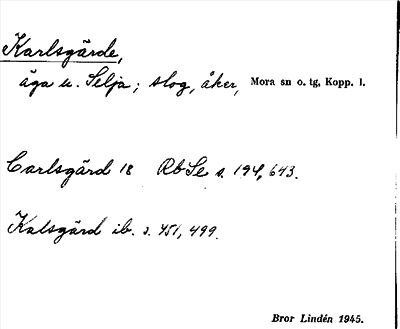 Karlsgärde,
äga u. Selja; slog, åker, Mora sn o. tg, Kopp. l.
Carlsgärd 18 RbSe s. 194, 643.
Kalsgärd ib. s. 451, 499.
Bror Lindén 1945.